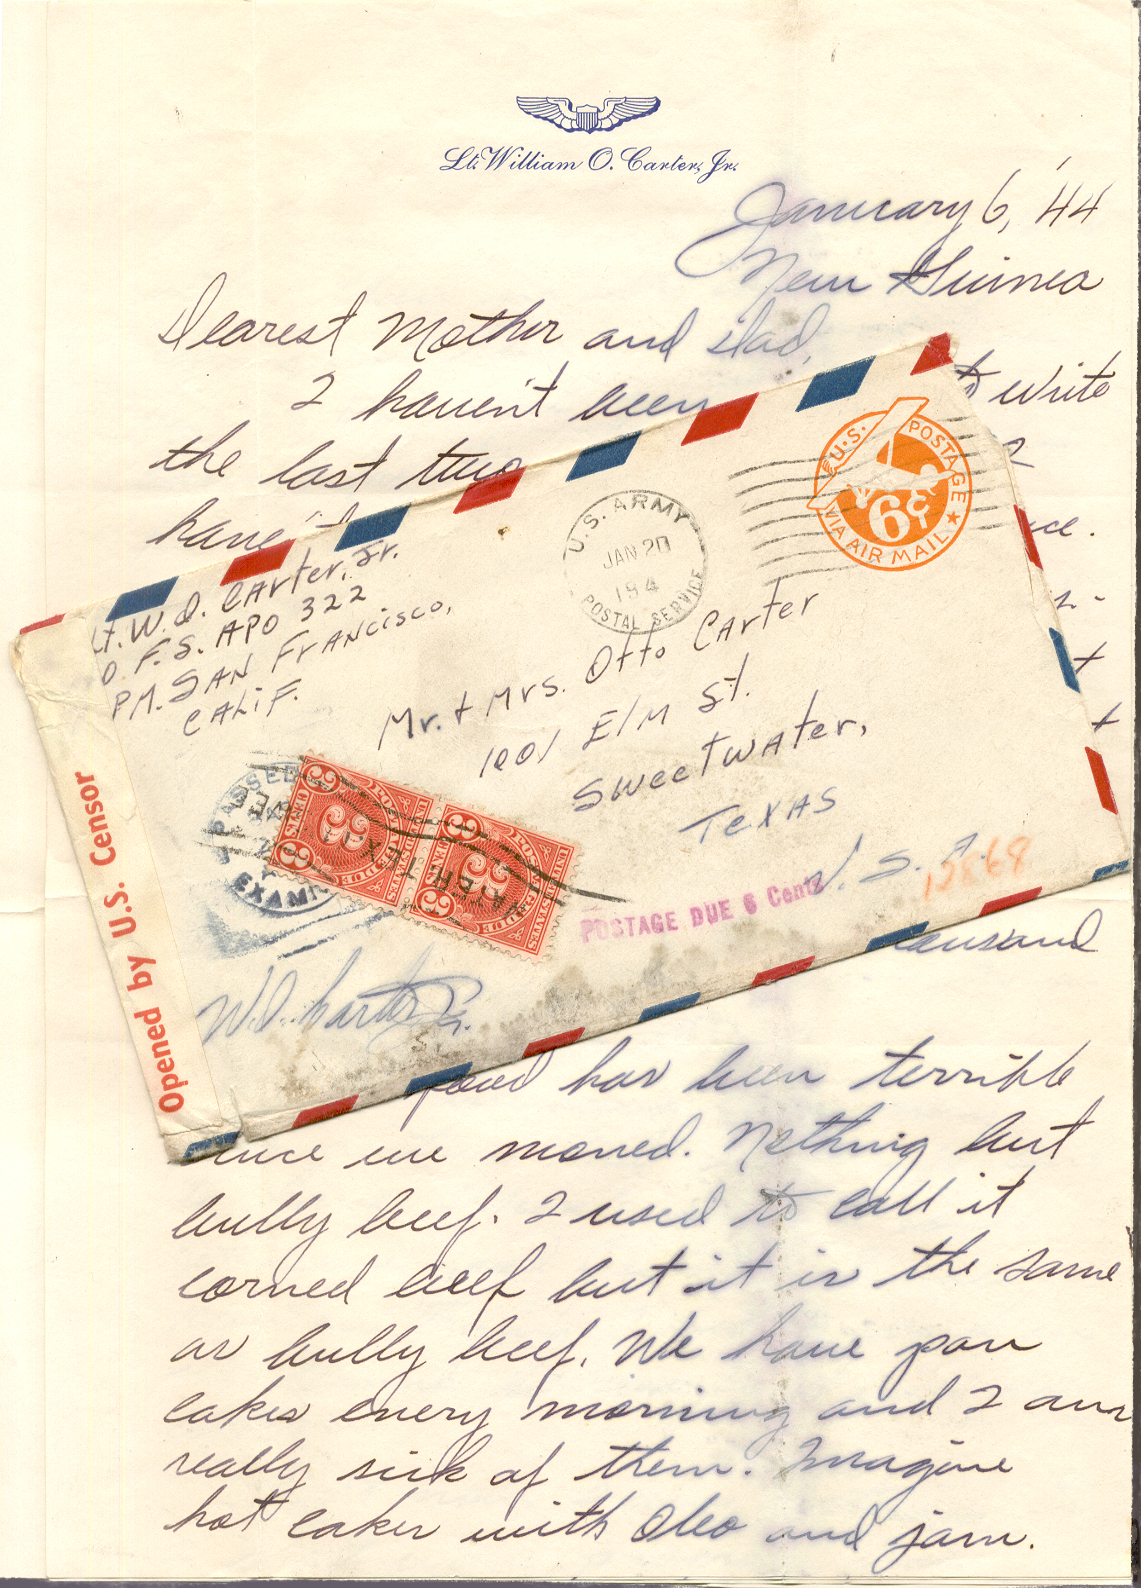 Lt. William O. Carter, Jr.
January 6, '44
New Guinea
Dearest Mother and Dad,
I haven't been
to write
the last two
haven't
U.S. POSTAGE
6¢
VIA AIR MAIL
U.S. ARMY
JAN 20
194
POSTAL SERVICE
Lt. W.O. Carter, Jr.
O.F.S. APO 322
PM. San Francisco,
Calif.
Mr. + Mrs. Otto Carter
1001 Elm St.
Sweetwater,
Texas
U.S.A.
Opened by U.S. Censor
PASSED
EXAMI
POSTAGE DUE
3
CENTS
3
POSTAGE DUE
3
CENTS
3
POSTAGE DUE 6 Cents
W.O. Carter Jr.
thousand
food has been terrible
since we moved. Nothing but
bully beef. I used to call it
corned beef but it is the same
as bully beef. We have pan
cakes every morning and I am
really sick of them. Imagine
hot cakes with Oleo and jam.